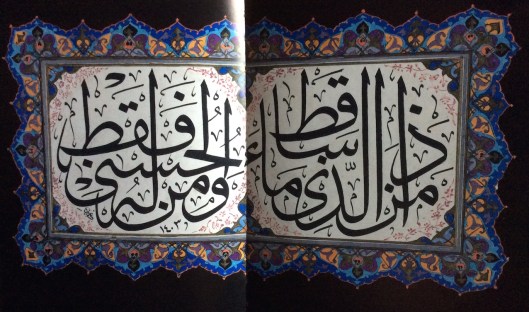 من ذا الذى ما ساء قط
ومن له الحسنى فقط
١٤٠٣